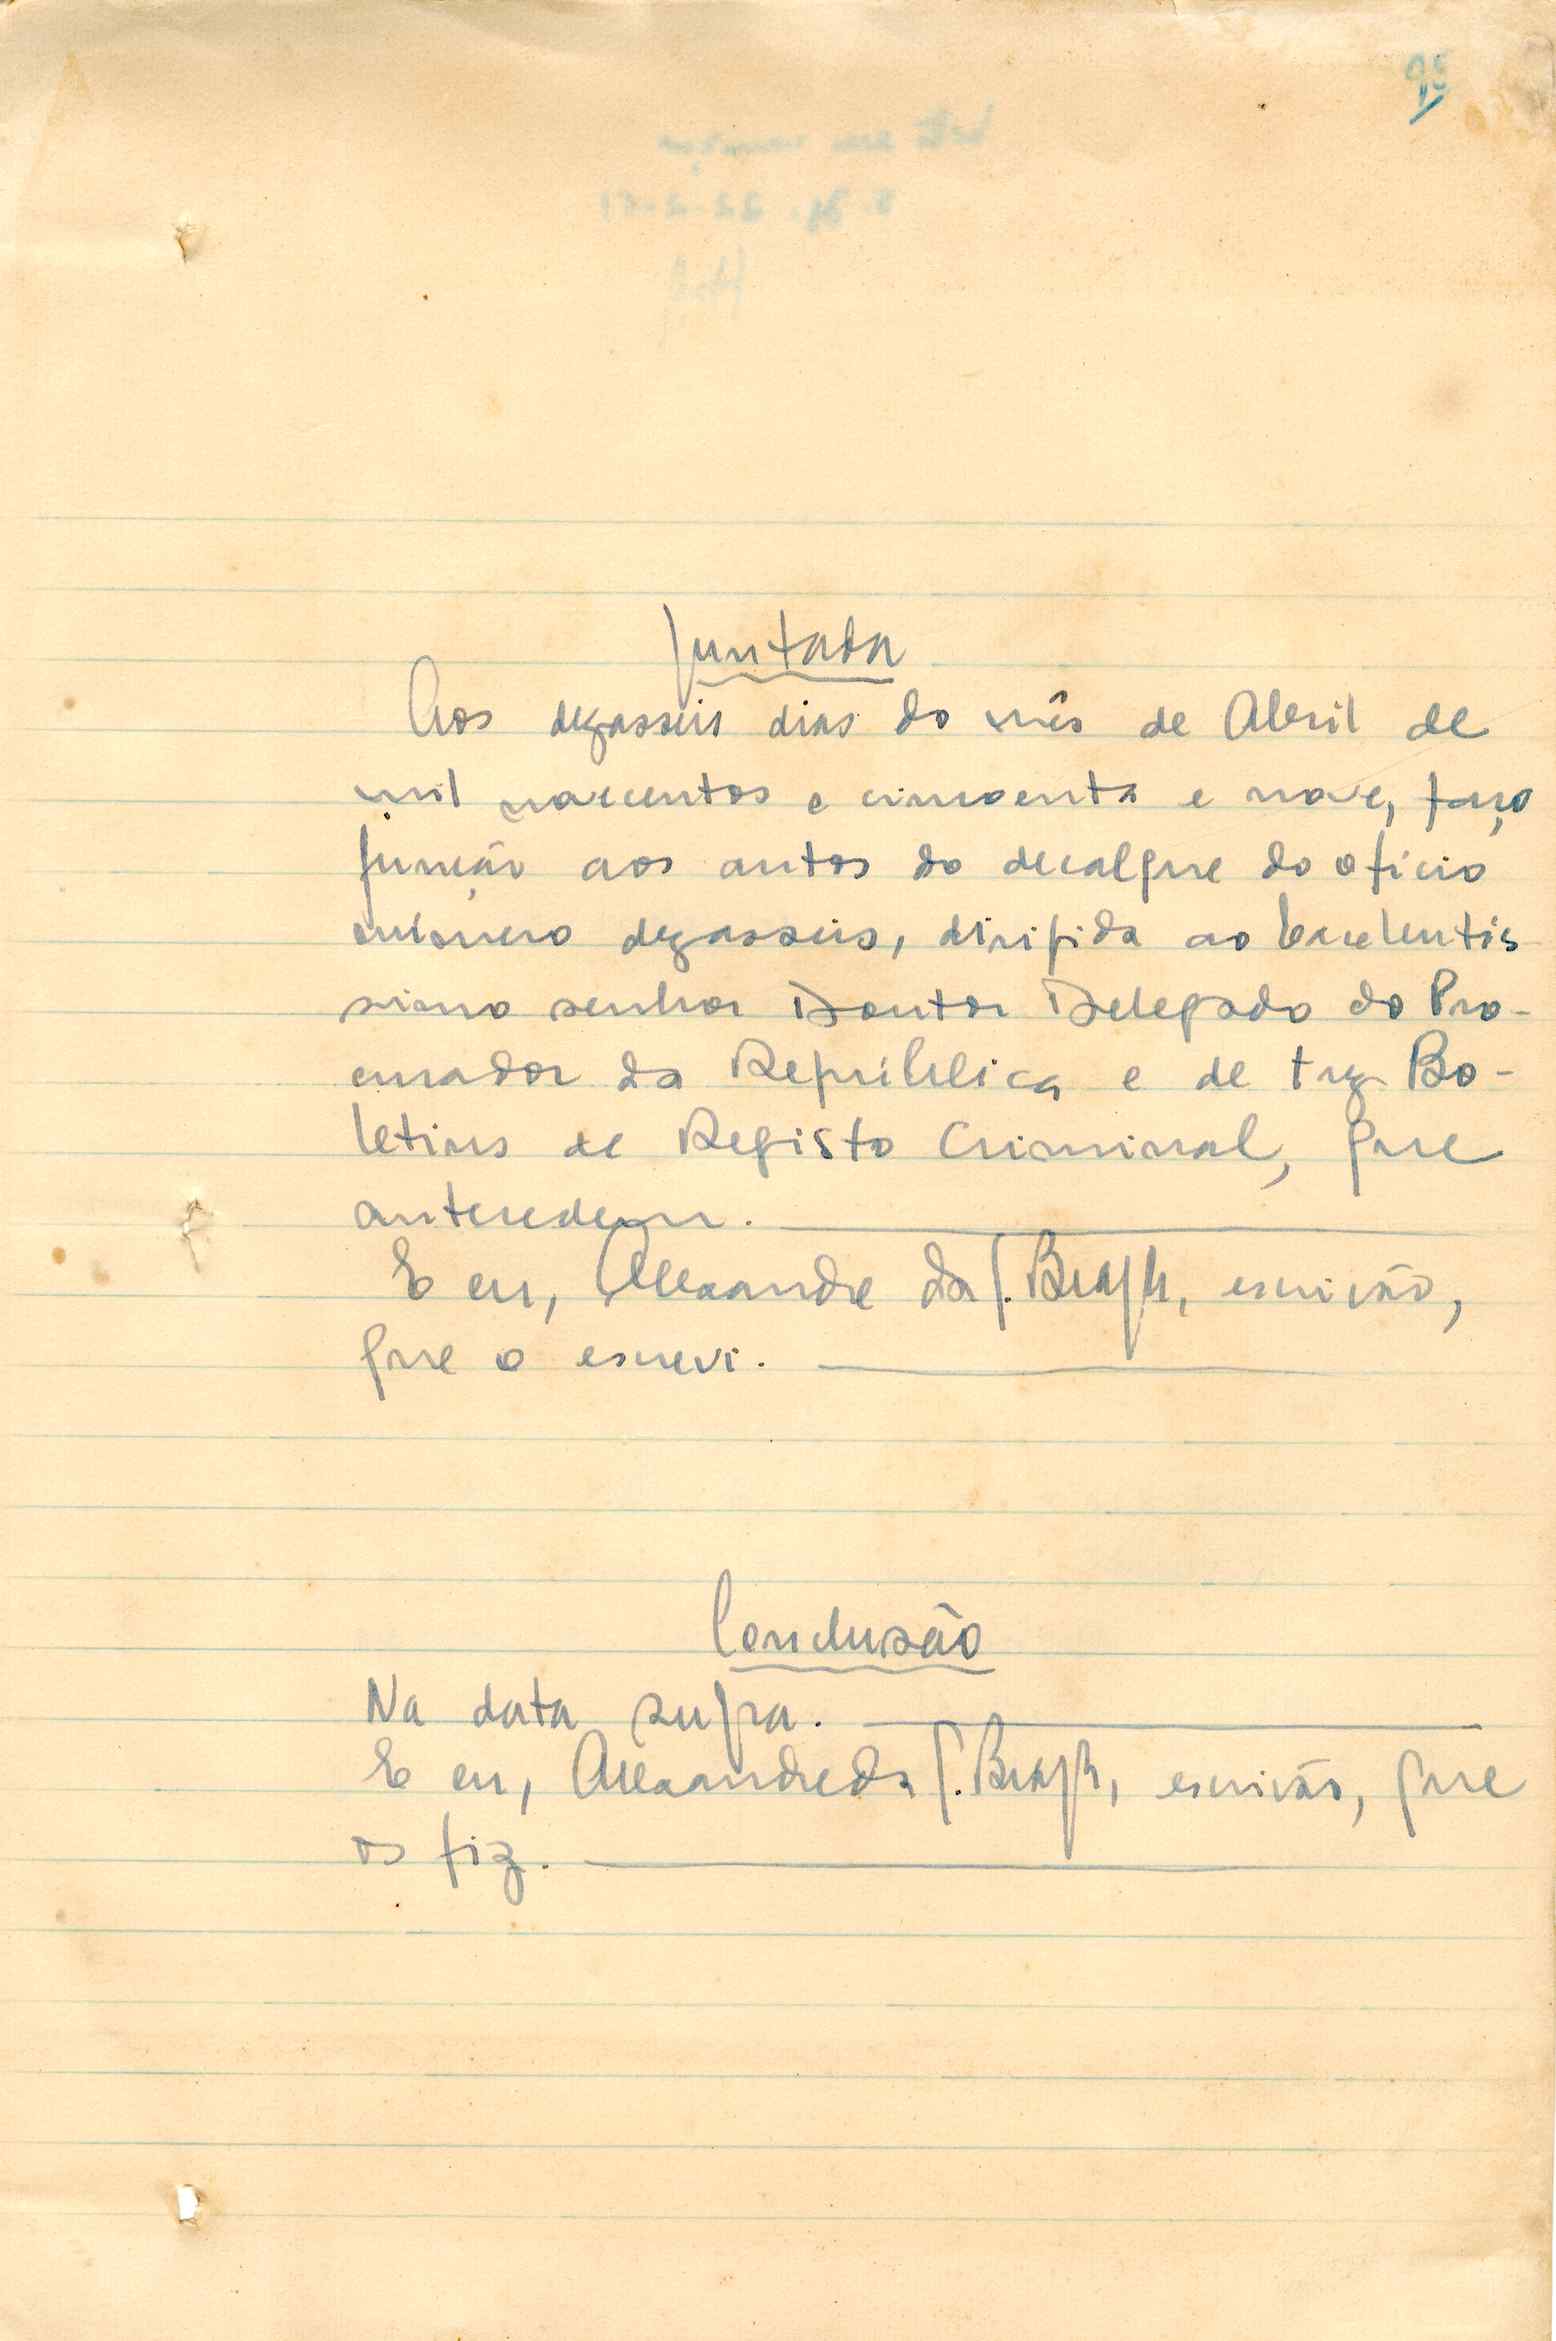 95
Juntada
Aos dezasseis dias do mês de Abril de
mil novecentos e cincoenta e nove, faço
junção aos autos do decalque do oficio
número dezasseis, dirigida ao Excelentis
simo senhor Doutor Delegado do Pro-
curador da República e de trez Bo-
letins de Registo Criminal, que
antecedem.
E eu, Alexandre da S. Braga, escrivão,
que o escrevi.
Conclusão
Na data supra.
E eu, Alexandre da S. Braga, escrivão, que
os fiz.